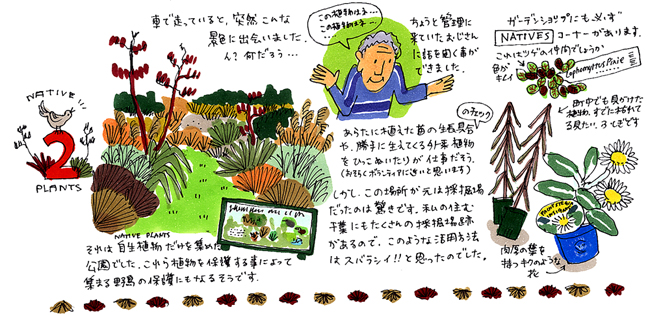 車で走っていると、突然こんな
景色に出会いました。
ん？何だろう…
NATIVE
2
PLANTS
NATIVE PLANTS
それは自生植物だけを集めた
公園でした。これら植物を保護する事によって
集まる野鳥の保護にもなるそうです。
この植物は子…
この植物は子…
ちょうど管理に
来ていたおじさん
に話を聞く事が
できました。
のチェック
あらたに植えた苗の生長具合
や、勝手に生えてくる外来植物
をひっこぬいたりが仕事だそう。
(おそらくボランティアに近いと思います)
しかし、この場所が元は採掘場
だったのは驚きです。私の住む
千葉にもたくさんの採掘場跡
があるので、このような活用方法
はスバラシイ!!と思ったのでした。
ガーデンショップにも必ず
NATIVES コーナーがあります。
これはツゲの仲間でしょうか
色が
キレイ
Lophomyrtus Pixie
町中でも見かけた
植物。すでに枯れて
る見たい。ふしぎです
肉厚の葉を
持つキクのような
花